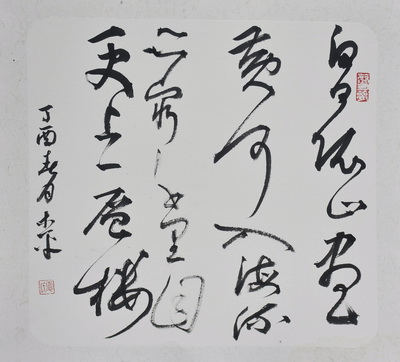 白日依山盡
黄河入海流
欲窮千里目
更上一層樓
丁酉春月